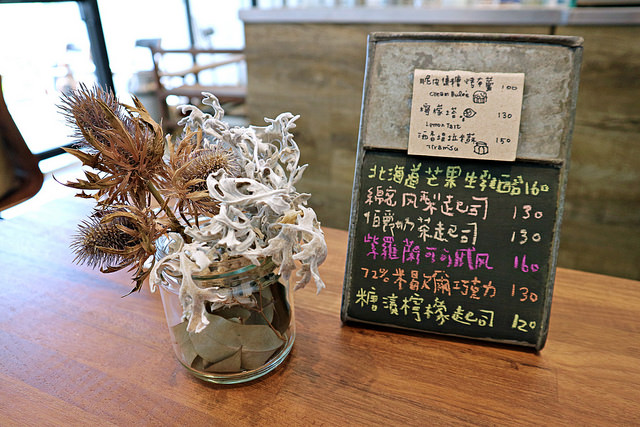 脆皮焦糖烤布蕾 100
Cream Bulee
檸檬塔 130
Lemon Tart
酒香提拉米蘇 150
Tiramisu
北海道芒果生乳酪 160
綿密鳳梨起司 130
伯爵奶茶起司 130
紫羅蘭可可戚风 160
72% 米晶爾巧克力 130
糖漬檸檬起司 120